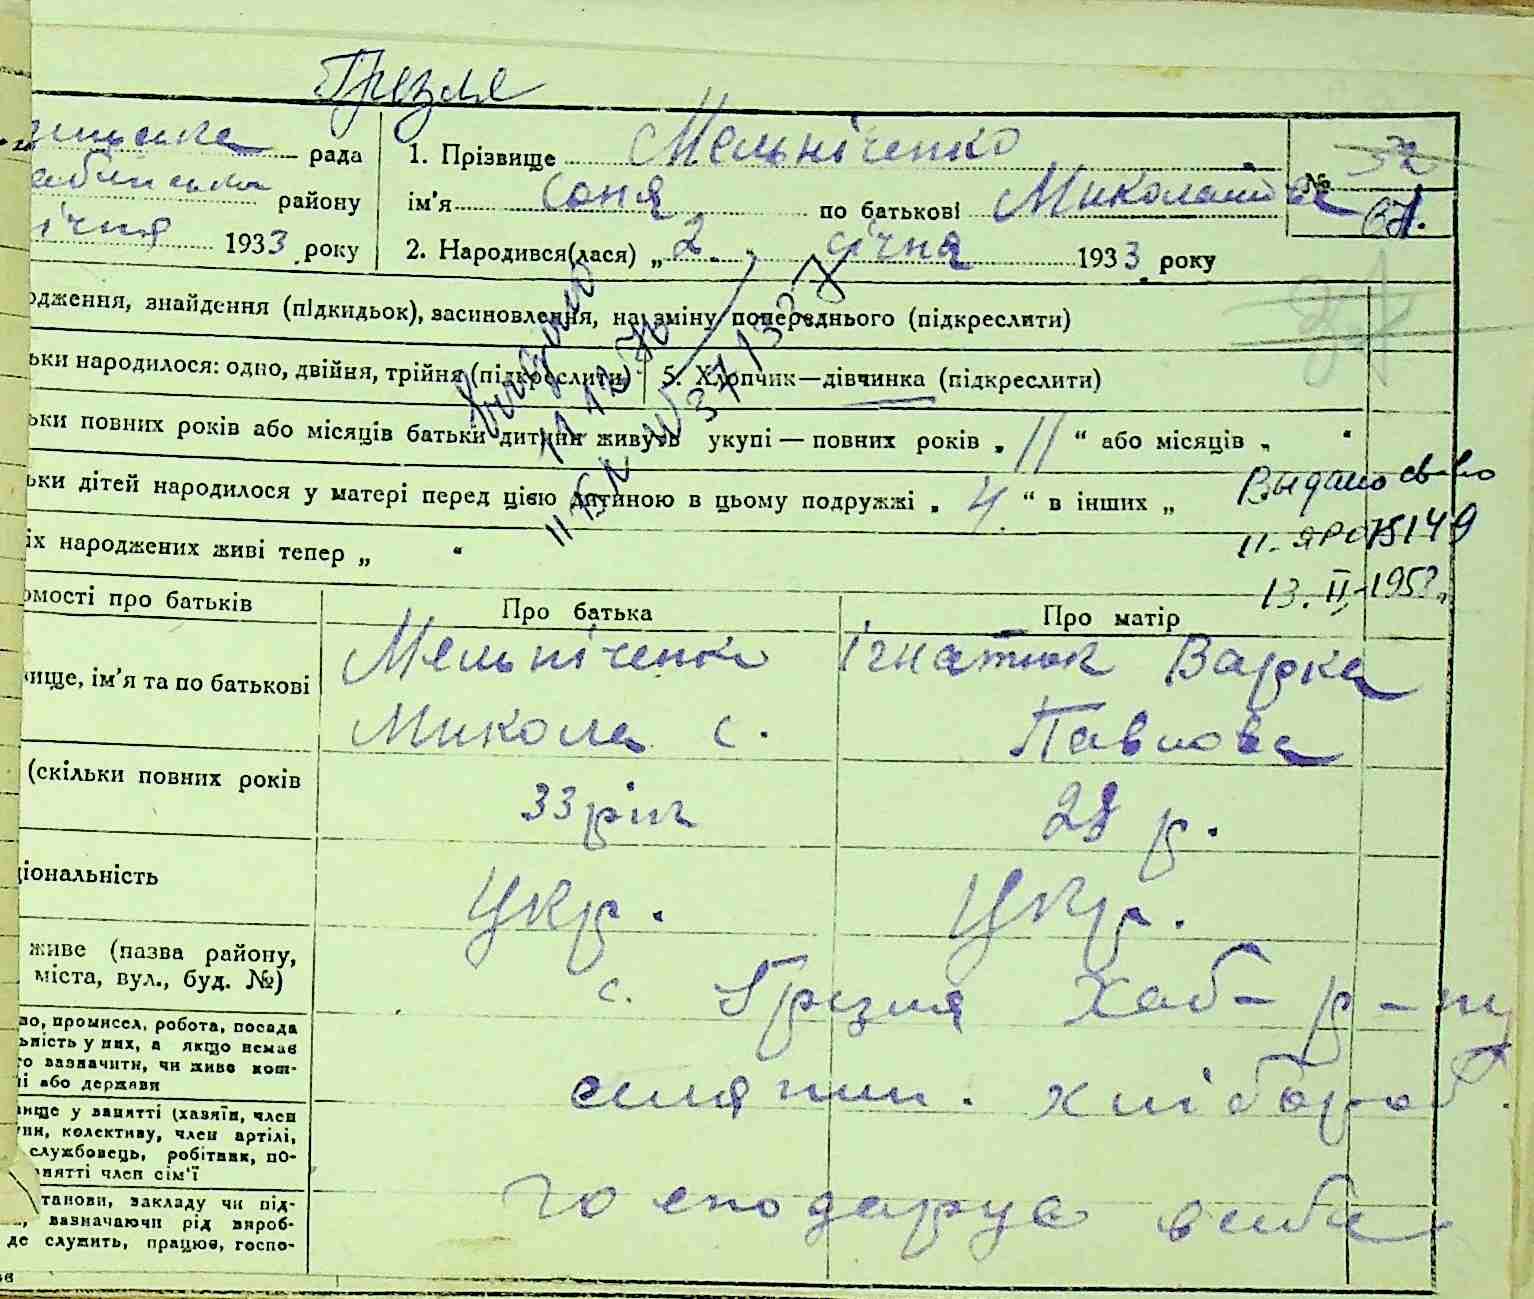 Грезля
рада
району
січня 1933 року
1. Прізвище Мельніченко
ім'я Соня по батькові Миколаївна
2. Народився(лася) „2. " січня 1933 року
№
67.
одження, знайдення (підкидьок), засиновлення, на зміну попереднього (підкреслити)
ьки народилося: одно, двійня, трійня (підкреслити) 5. Хлопчик—дівчинка (підкреслити)
ьки повних років або місяців батьки дитини живуть укупі — повних років „ 11 “ або місяців „ “
ьки дітей народилося у матері перед цією дитиною в цьому подружжі „ 4. “ в інших „
іх народжених живі тепер „ “
Выдано
11 12 70
Выдано св-во
13. II 1953
омості про батьків Про батька Про матір
ище, ім'я та по батькові Мельніченко Ігнатюк Варка
Микола С. Павлова
(скільки повних років 33 рік 28 р.
ціональність Укр. Укр.
живе (назва району,
міста, вул., буд. №) с. Грезля Хаб- р-ну
во, промисел, робота, посада
ьність у них, а якщо немає
го зазначити, чи живе кош-
 і або держави
селянин. хлібороб.
ище у занятті (хазяїн, член
ни, колективу, член артілі,
службовець, робітник, по-
нятті член сім'ї
танови, закладу чи під-
, зазначаючи рід вироб-
де служить, працює, госпо-
господарує